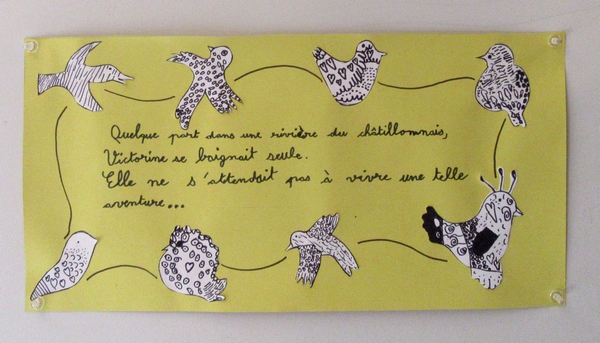 Quelque part dans une rivière du châtillonnais,
Victorine se baignait seule.
Elle ne s'attendait pas à vivre une telle
aventure...